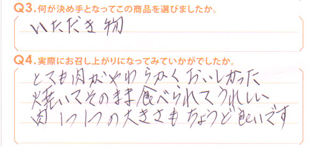 Q3.何が決め手となってこの商品を選びましたか。
いただき物
Q4.実際にお召し上がりになってみていかがでしたか。
とても肉がやわらかくおいしかった
焼いてそのまま食べられてうれしい
肉1つ1つの大きさもちょうど良いです